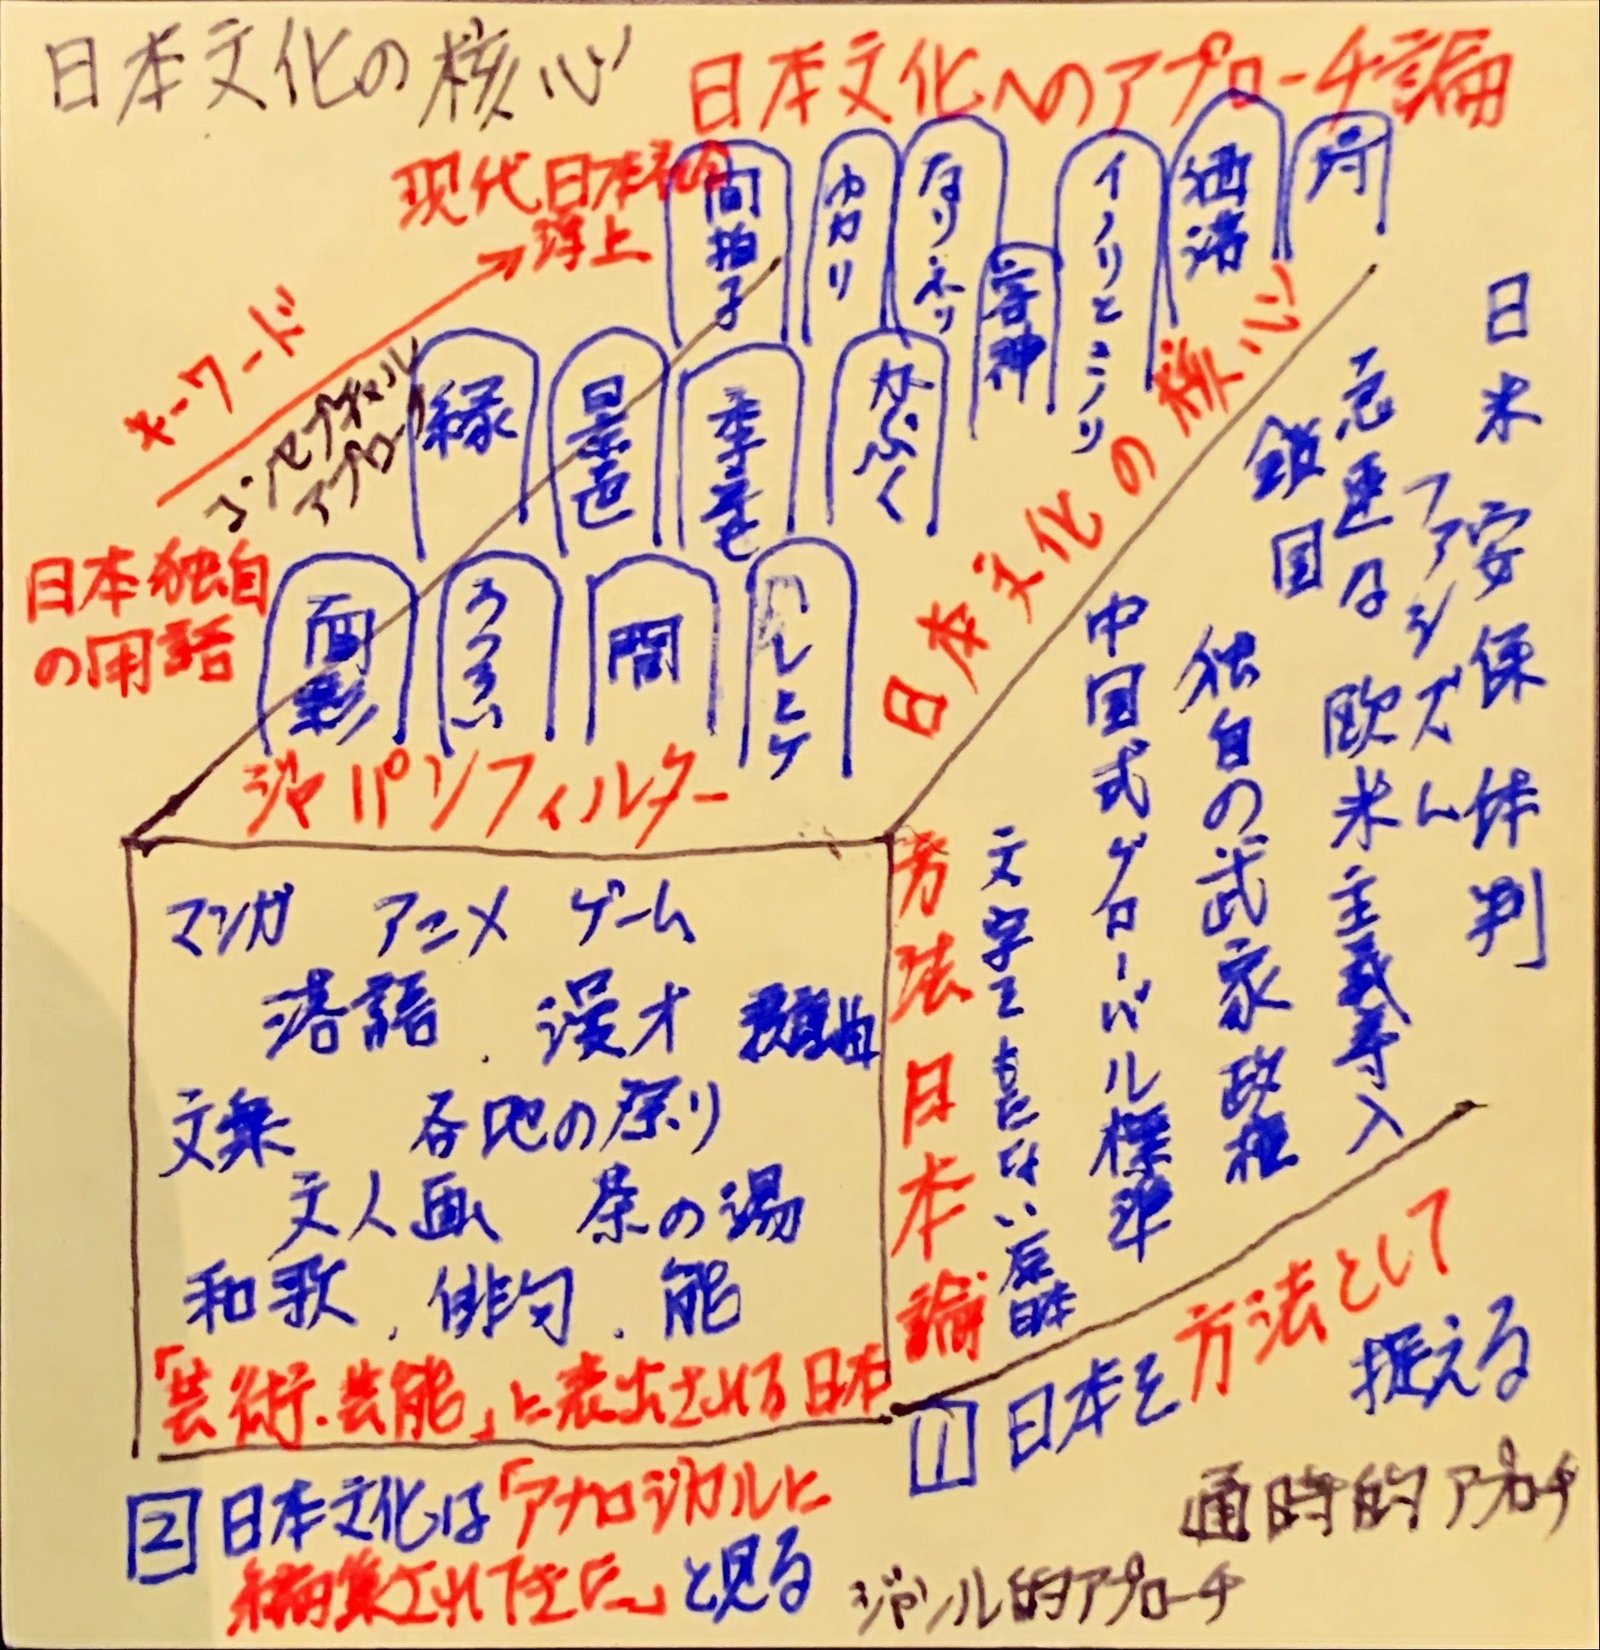 日本文化の核心
日本文化へのアプローチ論
現代日本社会
浮上
間拍子
カカリ
客神
イノリとミノリ
洒落
キーワード
コンセプチャル
アプローチ
縁
景色
かぶく
日本文化の核心
日本独自
の用語
面影
うつろい
間
ジャパンフィルター
日米安保体制
ファシズム
急速な欧米主義導入
鎖国
独自の武家政権
中国式グローバル標準
文字をもたない原日本
方法日本論
マンガ アニメ ゲーム
落語 . 漫才 歌謡曲
文楽 各地の祭り
文人画 茶の湯
和歌 . 俳句 . 能
「芸術.芸能」に表出される日本
1 日本を方法として
捉える
通時的アプローチ
2 日本文化は「アナロジカルに
編集されてきた」と見る
ジャンル的アプローチ